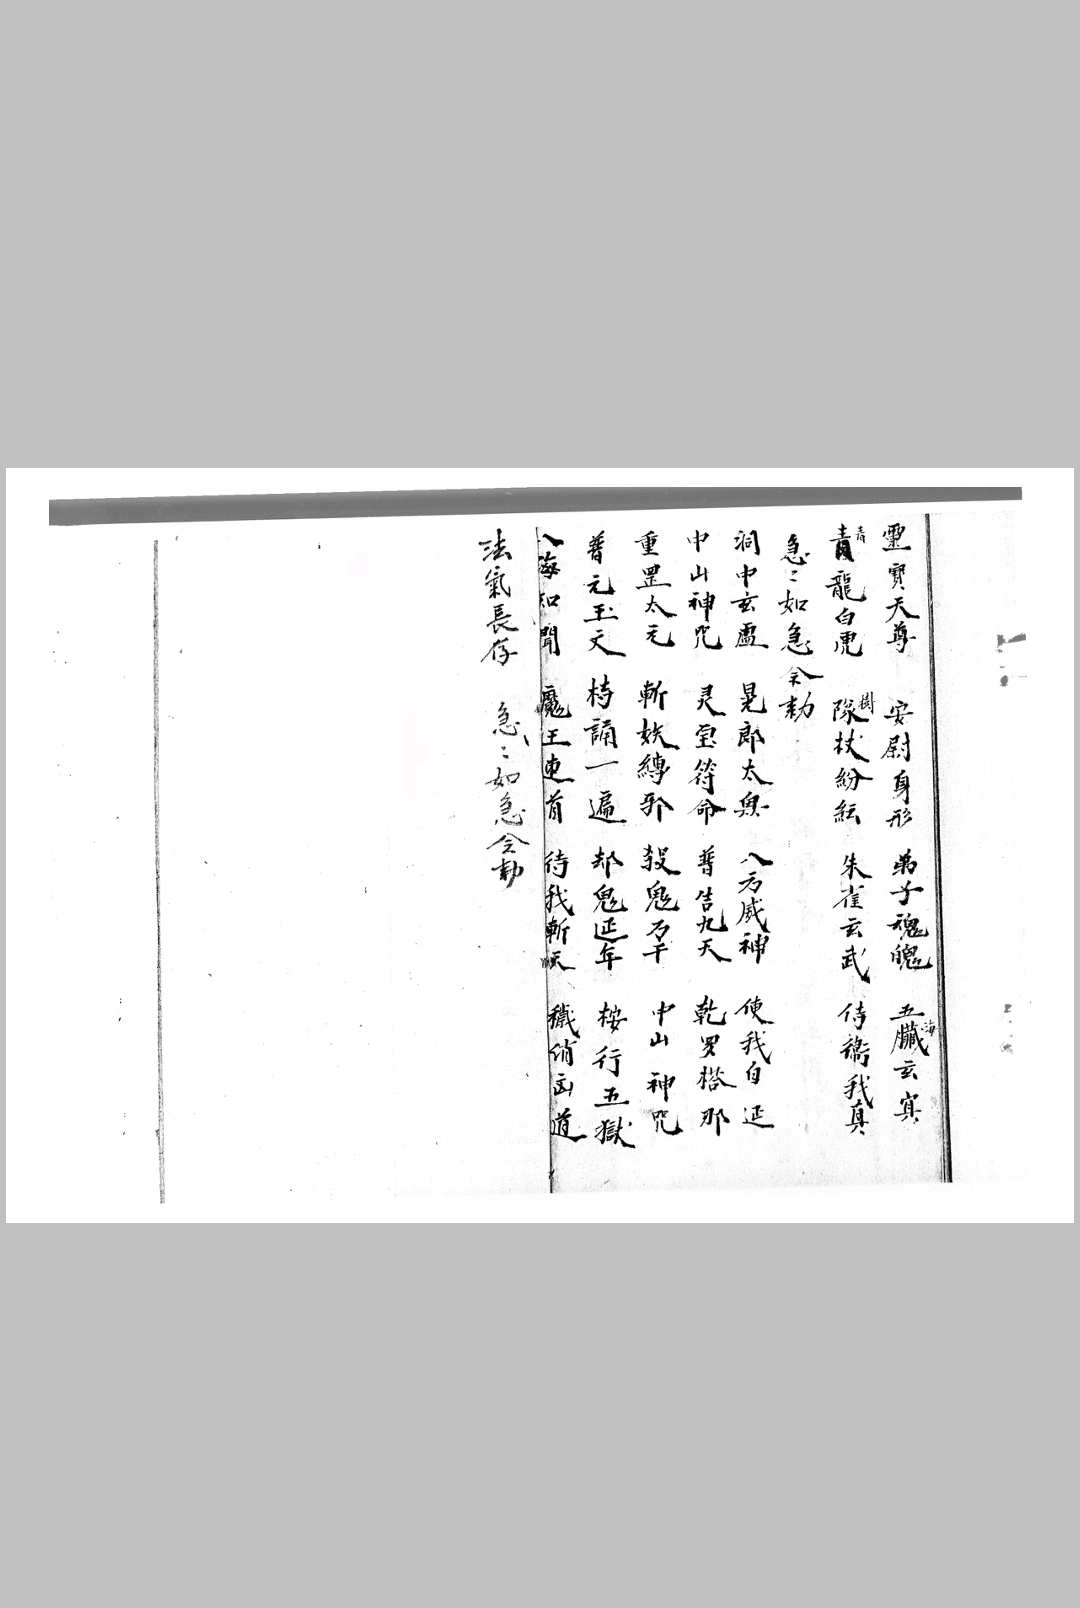 靈寶天尊 安尉身形 弟子魂魄 五臟玄宾
青龍白虎 隊杖紛紜 朱雀玄武 侍衞我真
急〻如急令勅
洞中玄虚 晃郎太臭 八方威神 使我自延
中山神咒 灵宝符命 普告九天 乾罗榙那
重罡太元 斬妖縳邪 殺鬼万千 中山神咒
普元玉文 持誦一遍 却鬼延年 桉行五獄
八海知聞 魔王束首 侍我斬 穢消 道
法氣長存 急〻如急令勅